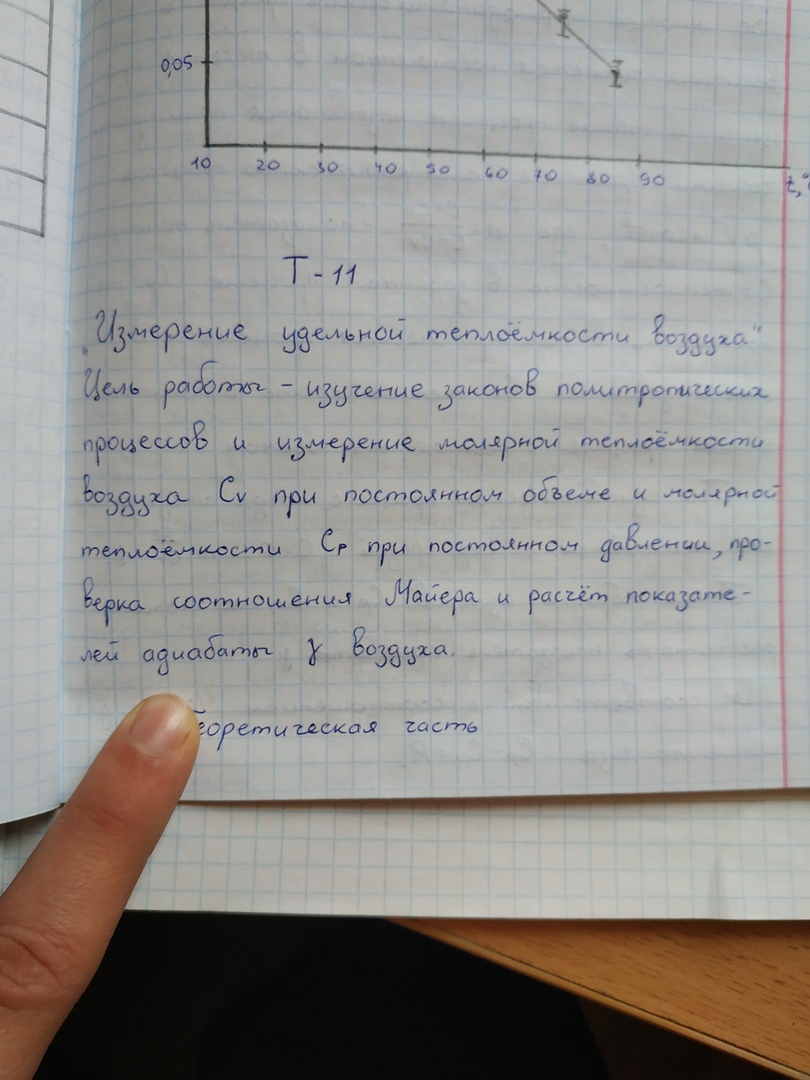 0,05
10 20 30 40 50 60 70 80 90
T-11
„Измерение удельной теплоёмкости воздуха"
Цель работы - изучение законов политропических
процессов и измерение молярной теплоёмкости
воздуха Cv при постоянном объеме и молярной
теплоёмкости Cp при постоянном давлении, про-
верка соотношения Майера и расчёт показате-
лей адиабаты γ воздуха.
Теоретическая часть